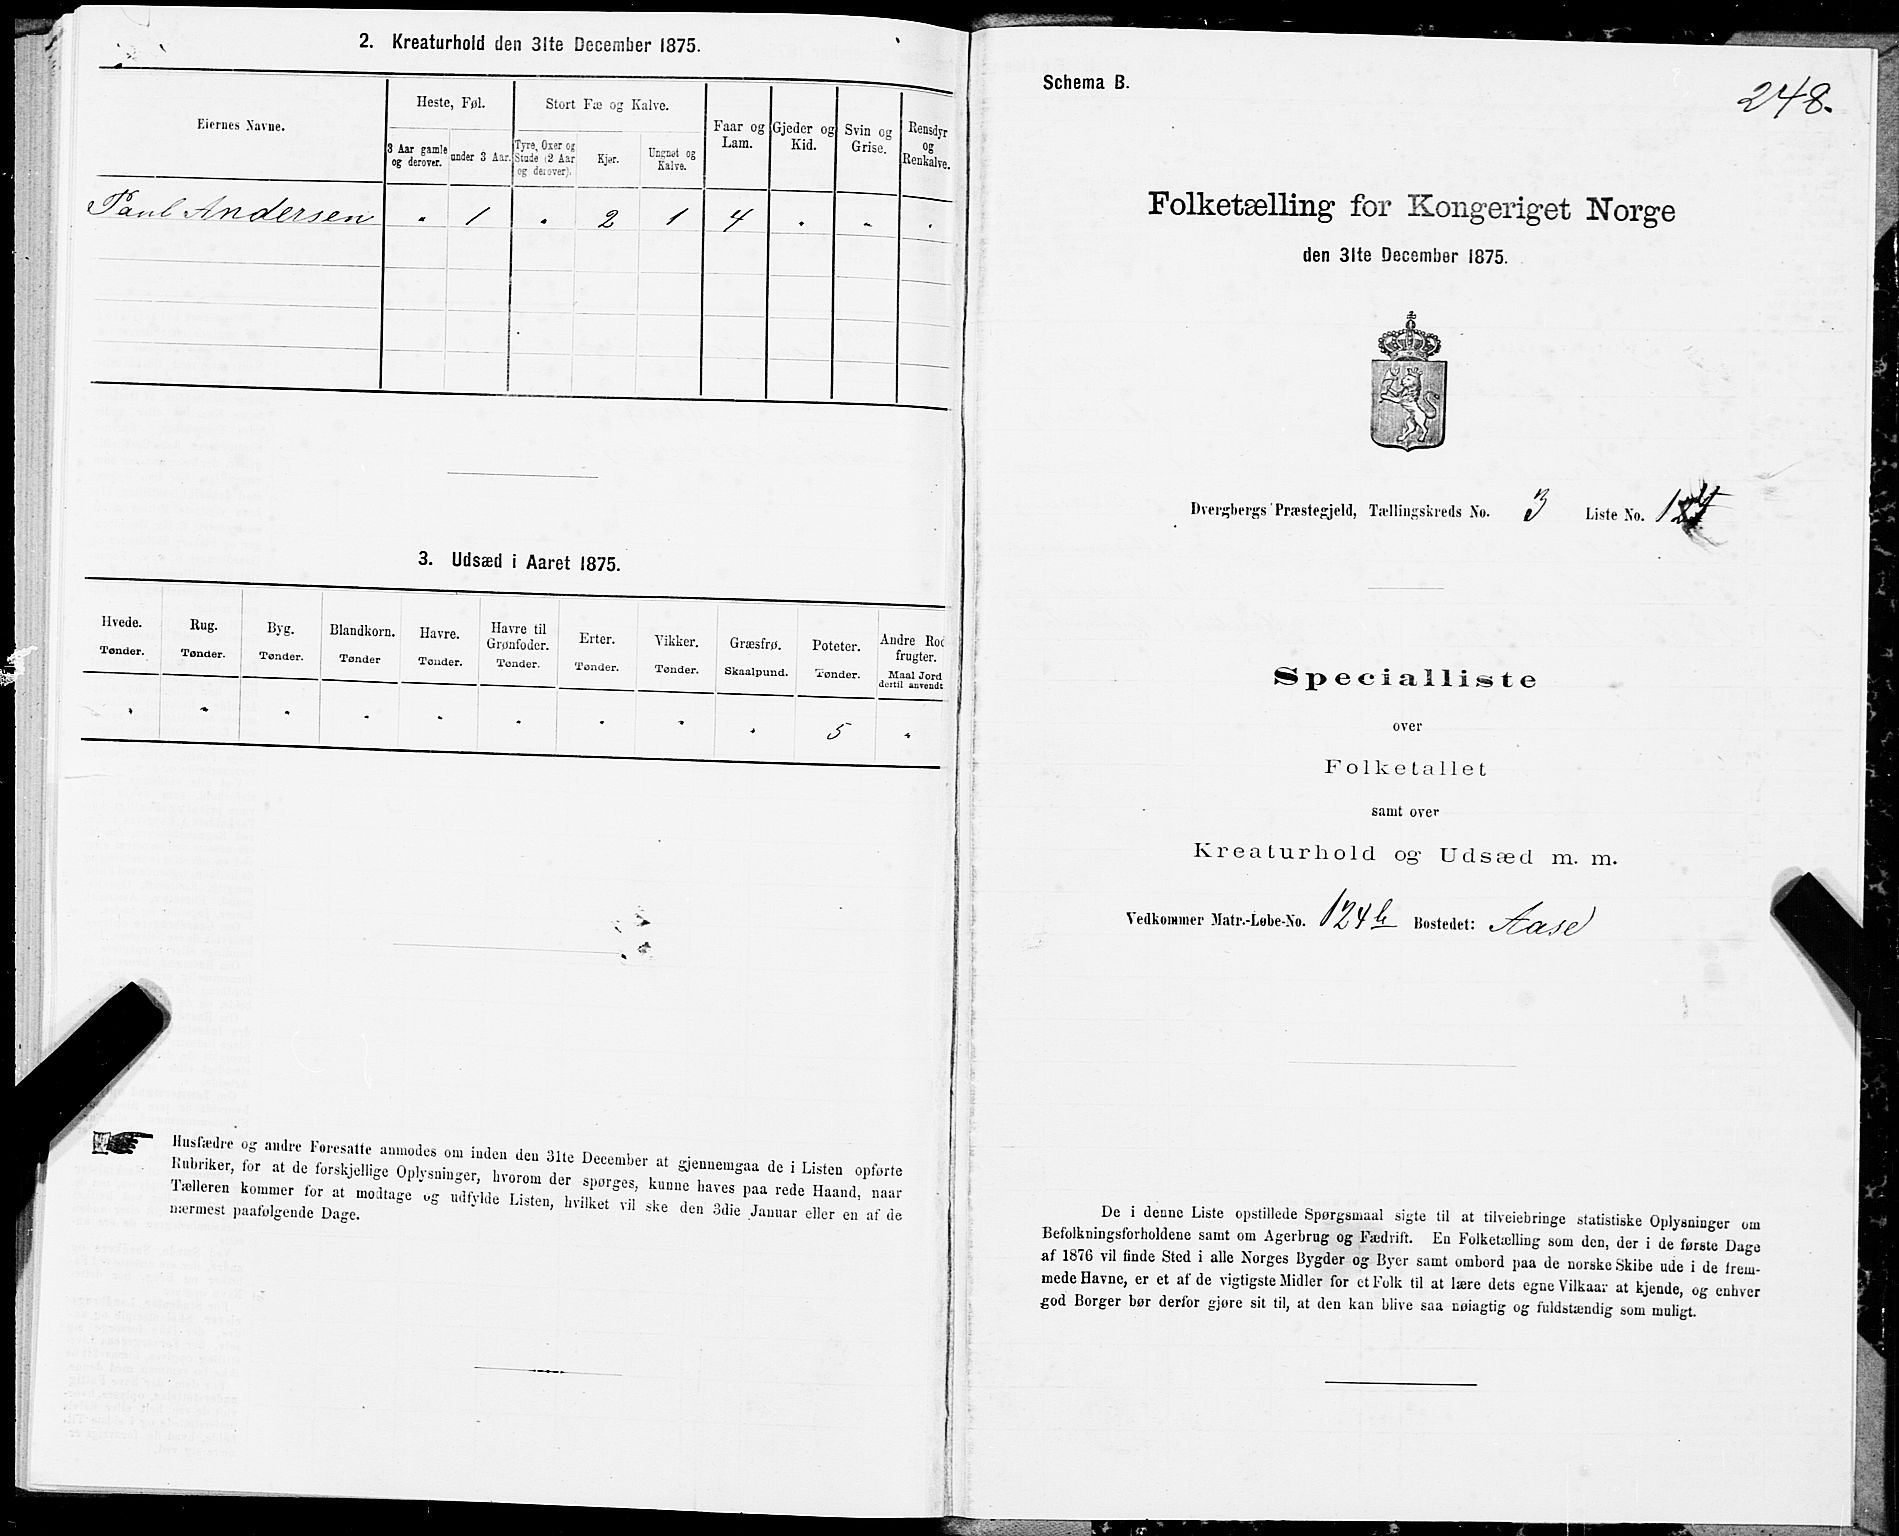 2. Kreaturhold den 31te December 1875.
Eiernes Navne.
Heste, Føl.
Stort Fæ og Kalve.
Faar og Lam.
Gjeder og Kid.
Svin og Grise.
Rensdyr og Renkalve.
3 Aar gamle og derover.
under 3 Aar.
Tyre, Oxer og Stude (2 Aar og derover).
Kjør.
Ungnøt og Kalve.
Paul Andersen " 1 " 2 1 4 " " "
3. Udsæd i Aaret 1875.
Hvede. Tønder.
Rug. Tønder.
Byg. Tønder.
Blandkorn. Tønder
Havre. Tønder.
Havre til Grønfoder. Tønder.
Erter. Tønder.
Vikker. Tønder.
Græsfrø. Skaalpund.
Poteter. Tønder.
Andre Rodfrugter. Maal Jord dertil anvendt
" " " " " " " " " 5 "
Husfædre og andre Foresatte anmodes om inden den 31te December at gjennemgaa de i Listen opførte
Rubriker, for at de forskjellige Oplysninger, hvorom der spørges, kunne haves paa rede Haand, naar
Tælleren kommer for at modtage og udfylde Listen, hvilket vil ske den 3die Januar eller en af de
nærmest paafølgende Dage.
Schema B.
248.
Folketælling for Kongeriget Norge
den 31te December 1875.
Dvergbergs Præstegjeld, Tællingskreds No. 3 Liste No.
Specialliste
over
Folketallet
samt over
Kreaturhold og Udsæd m. m.
Vedkommer Matr.-Løbe-No. 124b Bostedet: Aase
De i denne Liste opstillede Spørgsmaal sigte til at tilveiebringe statistiske Oplysninger om
Befolkningsforholdene samt om Agerbrug og Fædrift. En Folketælling som den, der i de første Dage
af 1876 vil finde Sted i alle Norges Bygder og Byer samt ombord paa de norske Skibe ude i de frem-
mede Havne, er et af de vigtigste Midler for et Folk til at lære dets egne Vilkaar at kjende, og enhver
god Borger bør derfor gjøre sit til, at den kan blive saa nøiagtig og fuldstændig som muligt.